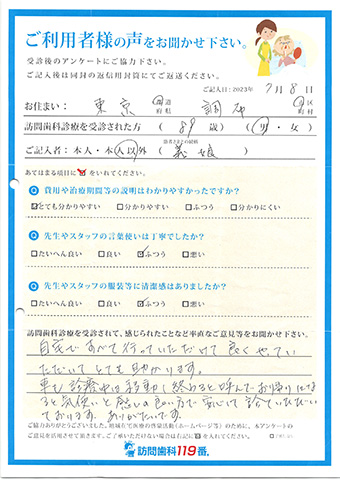 ご利用者様の声をお聞かせ下さい。
受診後のアンケートにご協力下さい。
ご記入後は同封の返信用封筒にてご返送ください。
ご記入日:2023年 7月 8日
お住まい: 東京 都道府県 調布 市区町村
訪問歯科診療を受診された方 ( 89 歳) (男・女)
患者さまとの続柄
ご記入者:本人・本人以外( 義娘 )
あてはまる項目に をいれてください。
費用や治療期間等の説明はわかりやすかったですか?
☑とても分かりやすい □分かりやすい □ふつう □分かりにくい
先生やスタッフの言葉使いは丁寧でしたか?
□たいへん良い □良い ☑ふつう □悪い
先生やスタッフの服装等に清潔感はありましたか?
□たいへん良い □良い ☑ふつう □悪い
訪問歯科診療を受診されて、感じられたことなど率直なご意見等をお聞かせ下さい。
自宅ですべて行っていただけて良くやってい
ただいてとても助かります。
車も診療中は移動し終わると呼んでお帰りにな
ると気使いと感じの良い方で安心して診ていただいい
ております。ありがたいです。
ご協力ありがとうございました。地域在宅医療の啓発活動(ホームページ等)のために、本アンケートの
ご意見を活用させて頂きます。ご了承いただけない場合は右記に を入れてください。
訪問歯科119番。